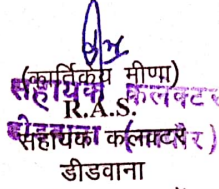 (कार्तिकेय मीणा)
सहायक कलक्टर
R.A.S.
सहायक कलक्टर
डीडवाना